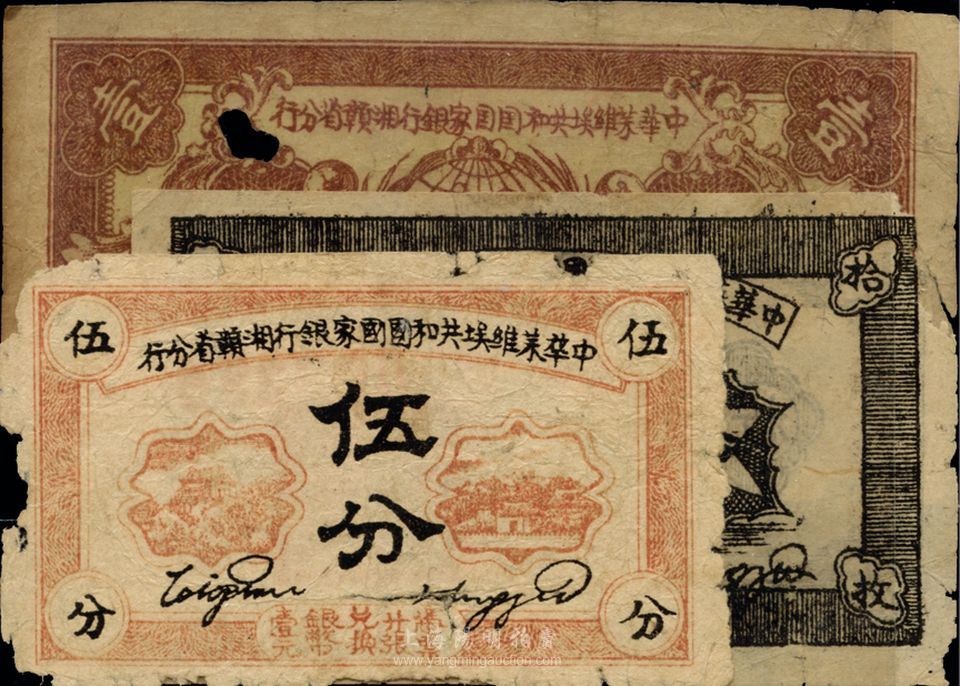 壹
中華蘇維埃共和囯囯家銀行湘贛省分行
拾
中華
枚
伍
伍
中華蘇維埃共和國國家銀行湘贛省分行
伍分
分
分
廿張兌換銀幣壹元
上海阳明拍卖
www.yangmingauction.com